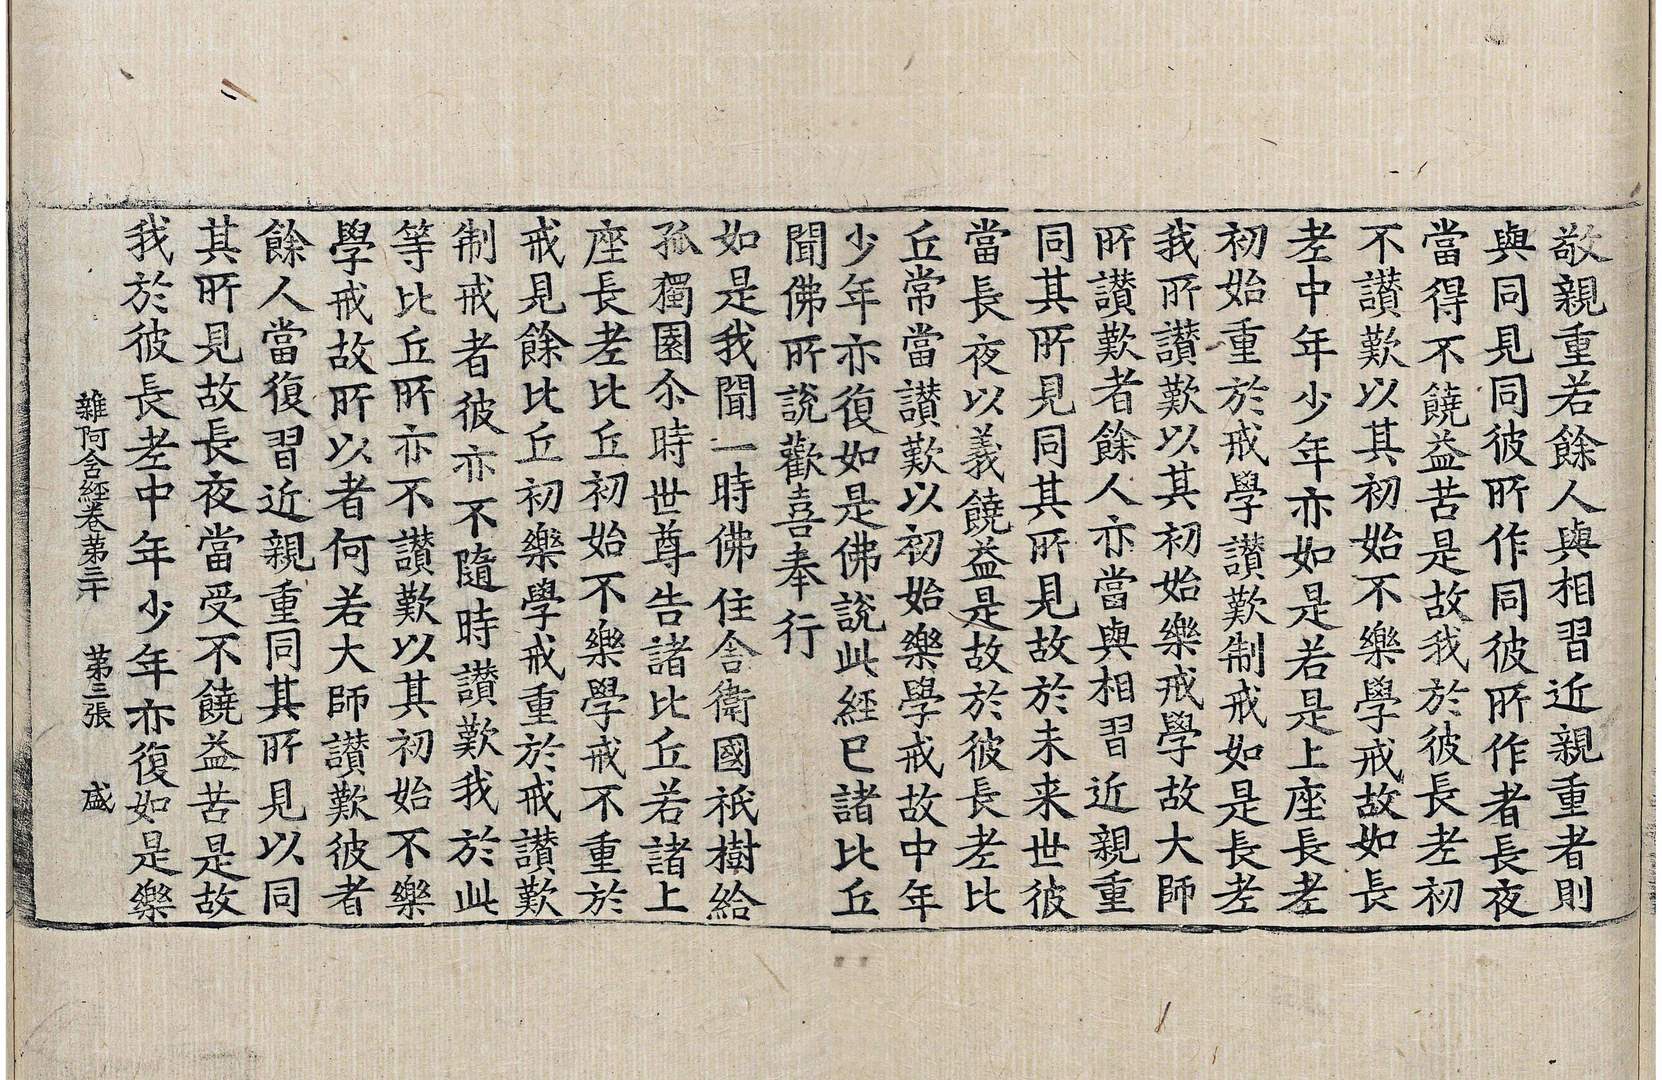 敬親重若餘人與相習近親重者則
與同見同彼所作同彼所作者長夜
當得不饒益苦是故我於彼長老初
不讃歎以其初始不樂學戒故如長
老中年少年亦如是若是上座長老
初始重於戒學讃歎制戒如是長老
我所讃歎以其初始樂戒學故大師
所讃歎者餘人亦當與相習近親重
同其所見同其所見故於未来世彼
當長夜以義饒益是故於彼長老比
丘常當讃歎以初始樂學戒故中年
少年亦復如是佛說此經已諸比丘
聞佛所說歡喜奉行
如是我聞一時佛住舍衛國祇樹給
孤獨園尒時世尊告諸比丘若諸上
座長老比丘初始不樂學戒不重於
戒見餘比丘初樂學戒重於戒讃歎
制戒者彼亦不隨時讃歎我於此
等比丘所亦不讃歎以其初始不樂
學戒故所以者何若大師讃歎彼者
餘人當復習近親重同其所見以同
其所見故長夜當受不饒益苦是故
我於彼長老中年少年亦復如是樂
雜阿含經卷第三十　第三張　盛